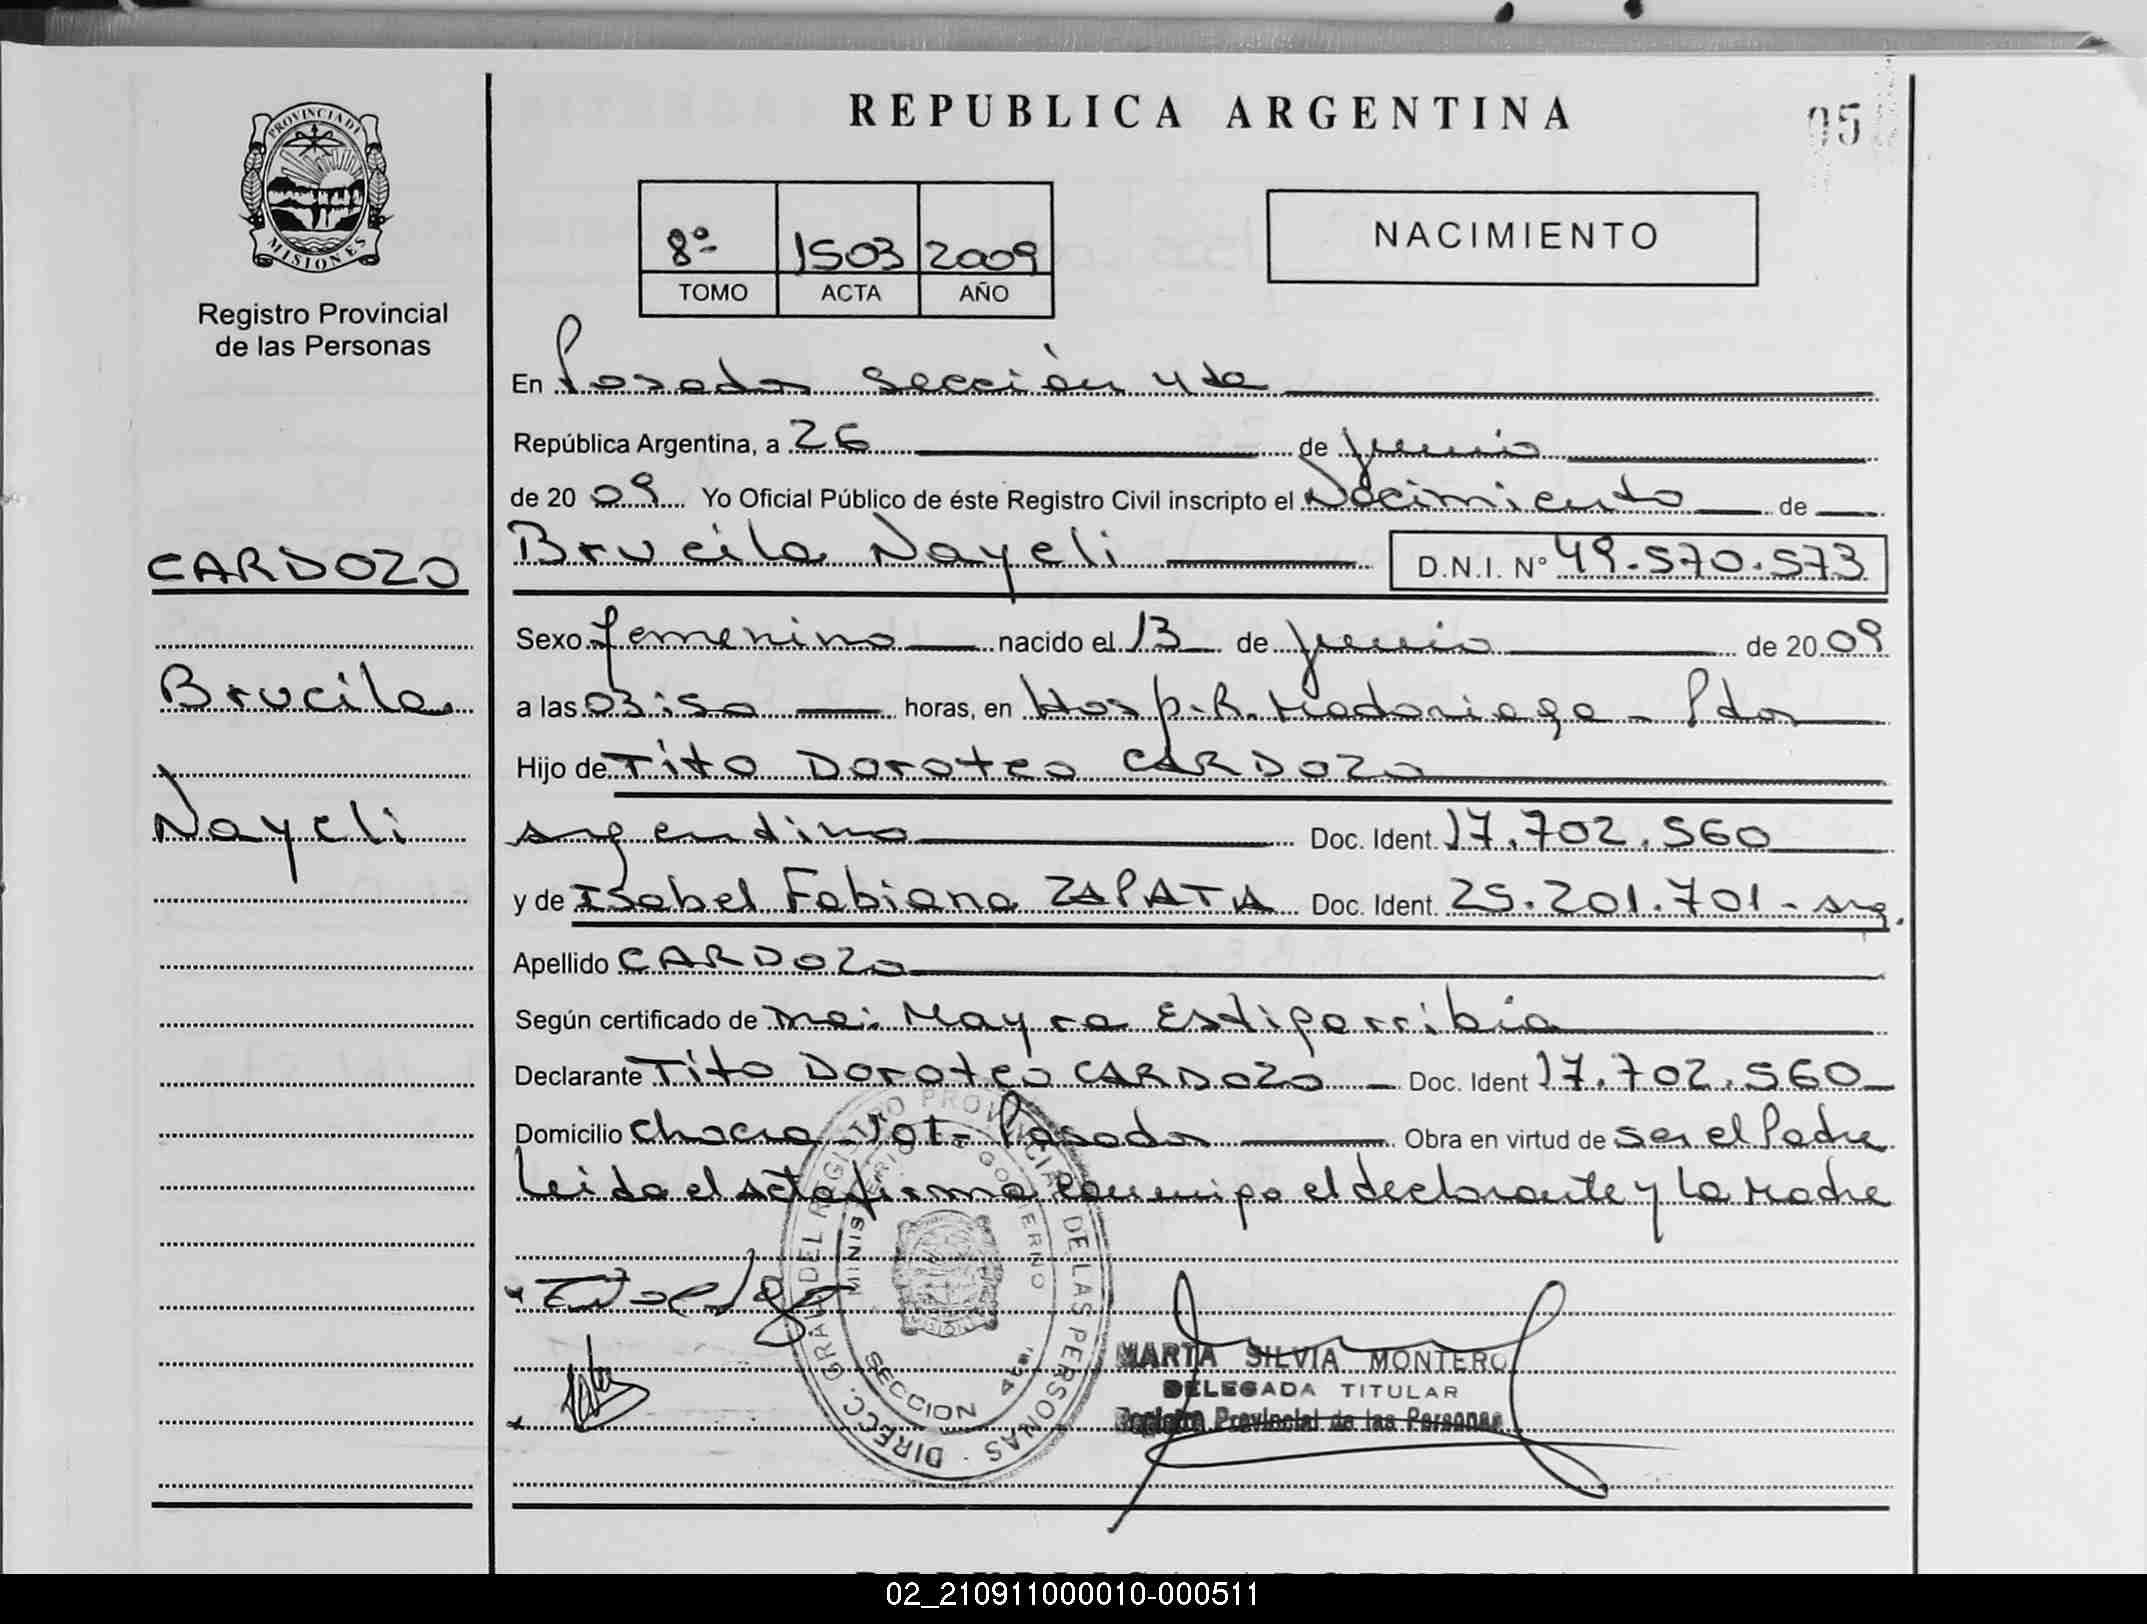 REPUBLICA ARGENTINA
05
PROVINCIA DE
MISIONES
Registro Provincial
de las Personas
8º 1503 2009
TOMO ACTA AÑO
NACIMIENTO
En Posadas Sección 4ta
República Argentina, a 26 de junio
de 2009 Yo Oficial Público de éste Registro Civil inscripto el Nacimiento de
CARDOZO
Brucila
Nayeli
Brucila Nayeli D.N.I. Nº 49.570.573
Sexo femenino nacido el 13 de junio de 2009
a las 03:50 horas, en Hosp. R. Madariaga - Pdas
Hijo de Tito Doroteo CARDOZO
argentino Doc. Ident. 17.702.560
y de Isabel Fabiana ZAPATA Doc. Ident. 25.201.701 - arg.
Apellido CARDOZO
Según certificado de Mayra Estigarribia
Declarante Tito Doroteo CARDOZO Doc. Ident 17.702.560
Domicilio chacra Posadas Obra en virtud de ser el Padre
Leida el acta firma conmigo el declarante y la Madre
DIRECC. GRAL. DEL REGISTRO PROVINCIAL DE LAS PERSONAS
MINISTERIO DE GOBIERNO
SECCION 4ta.
MISIONES
MARTA SILVIA MONTERO
DELEGADA TITULAR
Registro Provincial de las Personas
02_210911000010-000511